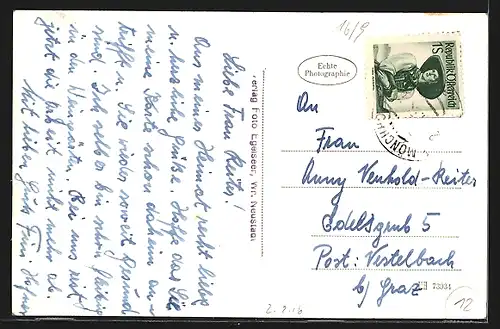 16/9
Liebe Frau Ruth!
Aus meiner Heimat recht liebe
u. herzliche Grüße. Hoffe das Sie
meine Karte schon daheim an-
trifft u. Sie wieder soweit gesund
sind. Ich selbst bin schon fleißig
in den Weingärten. Bei uns reist
jetzt die Arbeit nicht mehr ab.
Mit lieben Gruß Frau
Verlag Foto Egelseer, Wr. Neustadt
Echte
Photographie
Republik Österreich
1S
MÖNCHK
An
Frau
Anny Venhold-Reiter
Edelsgrub 5
Post: Vestelbach
b/ Graz
73934
12